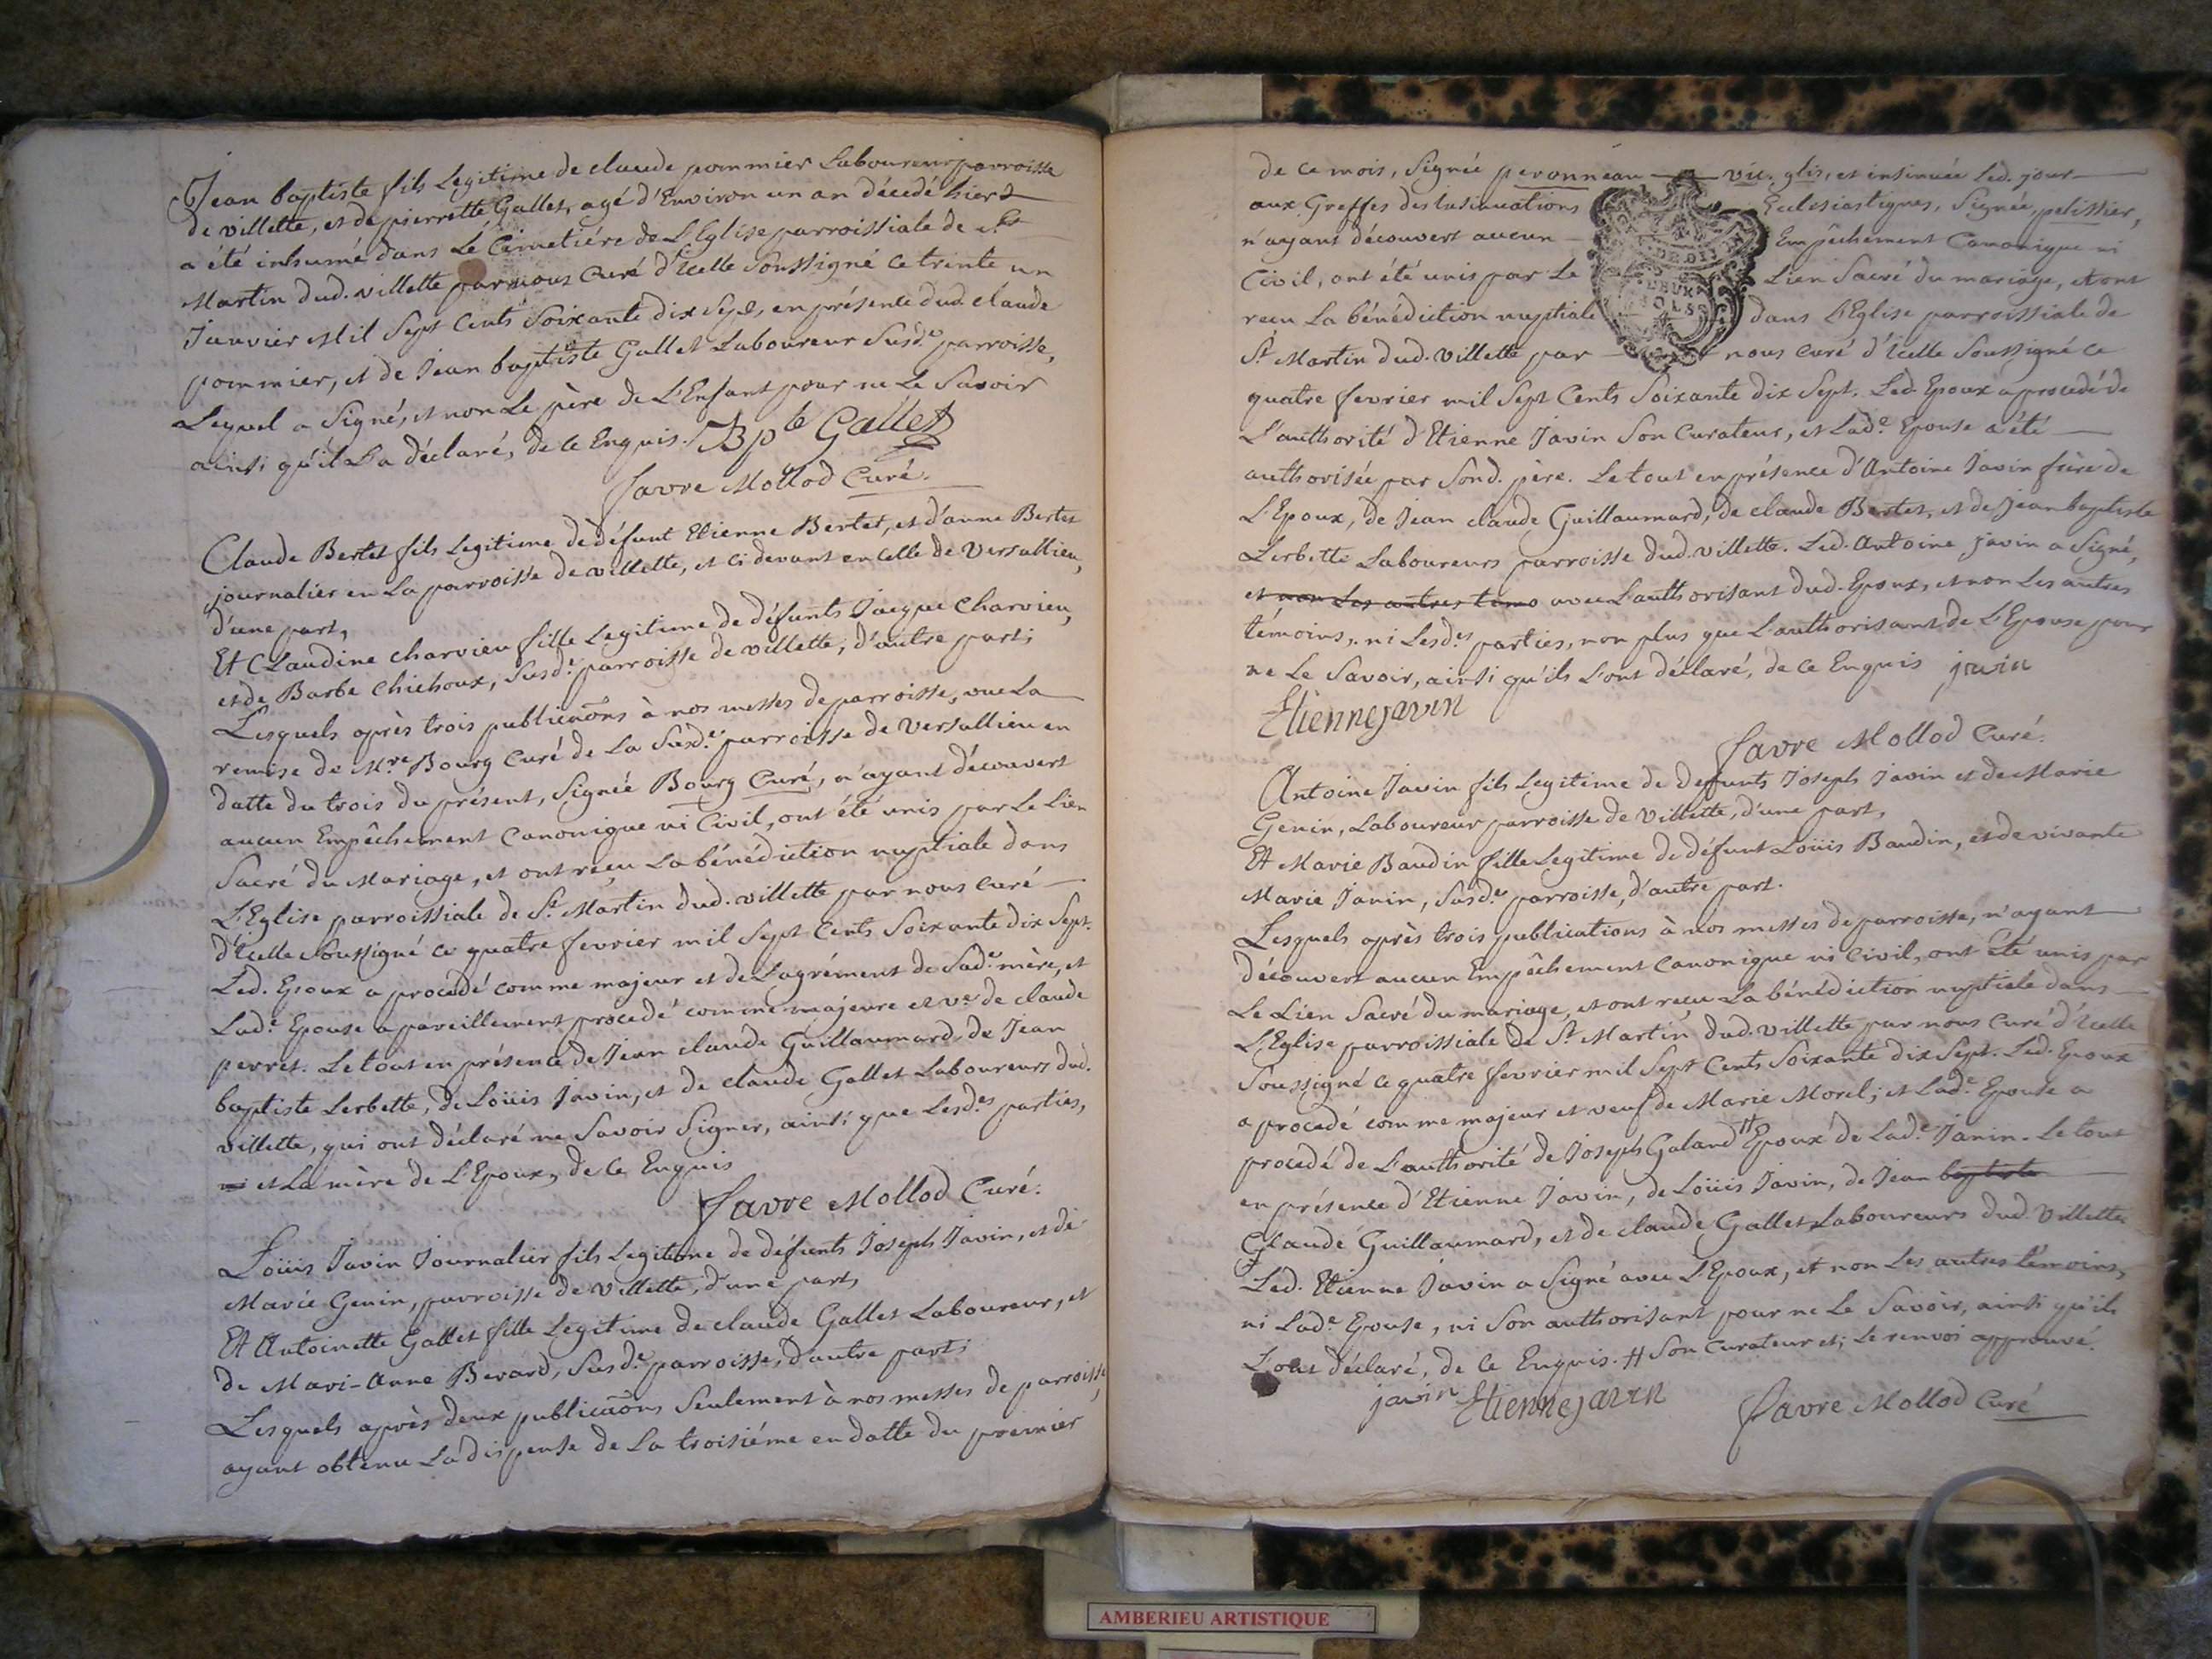 Jean baptiste fils Legitime de claude pommier Laboureur parroisse
de villette, et de pierrette Gallet, agé d'Environ un an décedé hier
a été inhumé dans Le Cimetiére de L'Eglise parroissiale de St
Martin dud. villette par nous Curé d'Icelle Soussigné Ce trente un
Janvier Mil Sept Cents Soixante dix Sept, en présence dud. claude
pommier, et de Jean baptiste Gallet Laboureur Susd.e parroisse,
Lequel a Signé, et non Le père de L'Enfant pour ne Le Savoir
ainsi qu'il L'a déclaré, de Ce Enquis. JBpte Gallet
favre Mollod Curé.
Claude Bertet fils Legitime de défunt Etienne Bertet, et d'anne Bertet
journalier en La parroisse de villette, et ci devant en Celle de Versallieu,
d'une part,
Et Claudine charvieu fille Legitime de défunts Jacque Charvieu,
et de Barbe Chichoux, Susd.e parroisse de villette, d'autre part;
Lesquels après trois publicaõns à nos messes de parroisse, vue La
remise de M.re Bourg Curé de La Susd.e parroisse de Versallieu en
datte du trois du présent, Signée Bourg Curé, n'ayant découvert
aucun Empêchement Canonique ni Civil, ont été unis par Le Lien
Sacré du Mariage, et ont reçu La bénédiction nuptiale dans
L'Eglise parroissiale de St. Martin dud. villette par nous Curé
d'Icelle Soussigné Ce quatre fevrier mil Sept Cents Soixante dix Sept.
Led. Epoux a procedé comme majeur et de L'agrément de Sad.e mère, et
Lad.e Epouse a pareillement procedé comme majeure et ve. de claude
perret. Le tout en présence de Jean claude Guillaumard, de Jean
baptiste Lerbette, de Loüis Javin, et de claude Gallet Laboureurs dud.
villette, qui ont déclaré ne Savoir Signer, ainsi que Lesd.es parties,
ni et La mère de L'Epoux, de Ce Enquis
favre Mollod Curé.
Loüis Javin Journalier fils Legitime de défunts Joseph Javin, et de
Marie Genin, parroisse de Villette, d'une part,
Et Antoinette Gallet fille Legitime de claude Gallet Laboureur, et
de Mari-Anne Berard, Susd.e parroisse, d'autre part;
Lesquels après deux publicaõns Seulement à nos messes de parroisse,
ayant obtenu La dispense de La troisiéme en datte du premier
de Ce mois, Signée peronneau vic. glis, et insinuée Led. jour
aux Greffes des Insinuations Ecclesiastiques, Signée pelissier,
n'ayant découvert aucun Empêchement Canonique ni
Civil, ont été unis par Le Lien Sacré du mariage, et ont
recu La bénédiction nuptiale dans L'Eglise parroissiale de
St. Martin dud. villette par nous curé d'Icelle Soussigné Ce
quatre fevrier mil Sept Cents Soixante dix Sept. Led. Epoux a procedé de
L'authorité d'Etienne Javin Son Curateur, et Lad.e Epouse a été
authorisée par Sond. père. Le tout en présence d'Antoine Javin frère de
L'Epoux, de Jean claude Guillaumard, de claude Bertet, et de Jean baptiste
Lerbette Laboureurs parroisse dud. villette. Led. Antoine javin a Signé,
et non Les autres temo avec L'authorisant dud. Epoux, et non Les autres
témoins, ni Lesd.es parties, non plus que L'authorisant de L'Epouse pour
ne Le Savoir, ainsi qu'ils L'ont déclaré, de Ce Enquis javin
Etienne javin
favre Mollod Curé.
Antoine Javin fils Legitime de Defunts Joseph Javin et de Marie
Genin, Laboureur parroisse de Villette, d'une part,
Et Marie Baudin fille Legitime de défunt Loüis Baudin, et de vivante
Marie Janin, Susd.e parroisse, d'autre part.
Lesquels après trois publications à nos messes de parroisse, n'ayant
découvert aucun Empêchement canonique ni Civil, ont été unis par
Le Lien Sacré du mariage, et ont recu La bénédiction nuptiale dans
L'Eglise parroissiale de St. Martin dud. villette par nous Curé d'Icelle
Soussigné Ce quatre fevrier mil Sept Cents Soixante dix Sept. Led. Epoux
a procedé comme majeur et veuf de Marie Morel; et Lad.e Epouse a
procedé de L'authorité de Joseph Galand # Epoux de Lad.e Janin. Le tout
en présence d'Etienne Javin, de Loüis Javin, de Jean baptiste
Claude Guillaumard, et de claude Gallet Laboureurs dud. Villette
Led. Etienne Javin a Signé avec L'Epoux, et non Les autres témoins,
ni Lad.e Epouse, ni Son authorisant pour ne Le Savoir, ainsi qu'ils
L'ont déclaré, de Ce Enquis. # Son Curateur et; Le renvoi approuvé.
javin Etienne javin favre Mollod Curé
AMBERIEU ARTISTIQUE